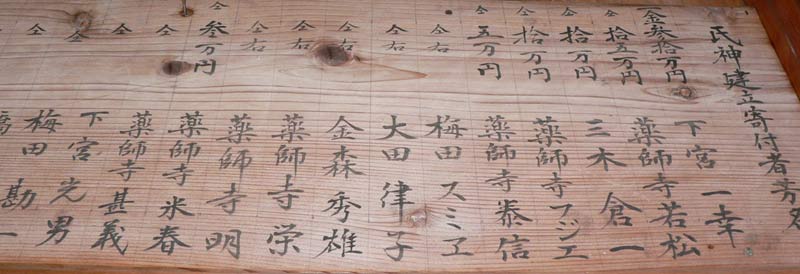 氏神建立寄付者芳
一金参拾万円 下宮一幸
仝 拾五万円 薬師寺若松
仝 拾万円 三木倉一
仝 拾万円 薬師寺フジエ
仝 五万円 薬師寺泰信
仝右 梅田スミヱ
仝右 大田律子
仝右 金森秀雄
仝右 薬師寺栄
仝右 薬師寺明
仝 参万円 薬師寺米春
仝 薬師寺甚義
仝 下宮光男
仝 梅田勘一
仝